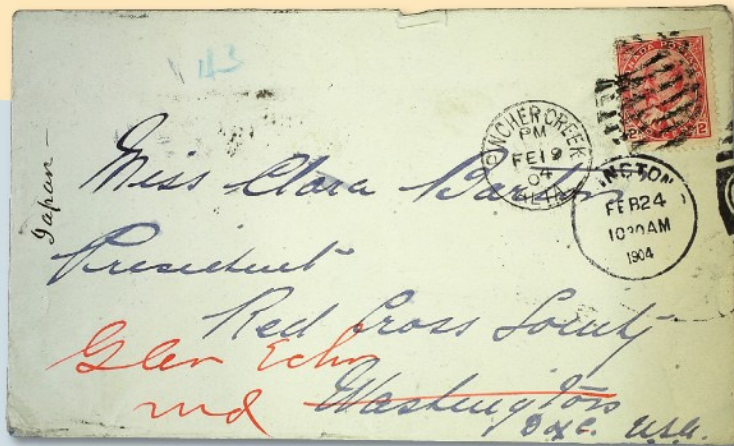 43
CANADA POSTAGE
2 2
PINCHER CREEK
PM
FE 19
04
ALTA
INGTON
FEB 24
10 30 AM
1904
Japan -
Miss Clara Barton
President
Red Cross Society
Glen Echo
Md
Washington
D.C. USA.